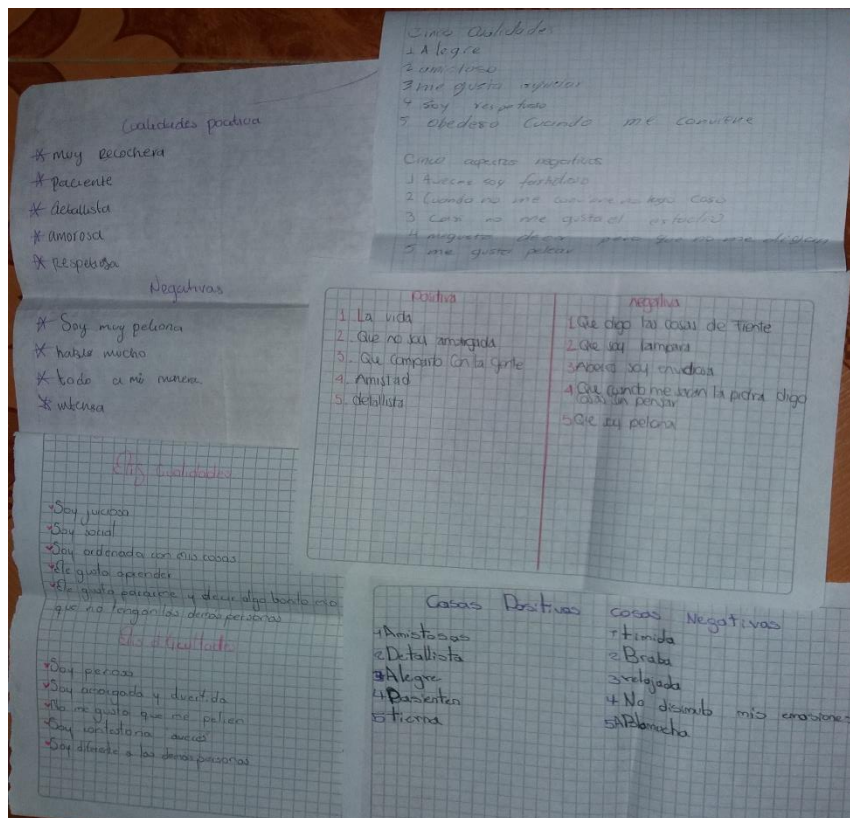 Cualidades positiva
* muy Recochera
* paciente
* detallista
* amorosa
* Respetosa
Negativas
* Soy muy peliona
* hablo mucho
* todo a mi manera
* intensa
Cinco Cualidades
1 Alegre
2 amistoso
3 me gusta ayudar
4 Soy respetuoso
5 obedesco Cuando me conviene
Cinco aspectos negativos
1 Aveces soy
2 Cuando no me conviene no ago Caso
3 Casi no me gusta el estudio
4
5 me gusta pelear
positiva
1 La vida
2 Que no soy amargada
3 Que comparto Con la gente
4 Amistad
5 detallista
negativa
1 Que digo las cosas de frente
2 Que soy lampara
3 Aveces soy envidiosa
4 Que cuando me sacan la piedra digo
cosas sin pensar
5 Que soy peliona
Mis Cualidades
Soy juiciosa
Soy social
Soy ordenada con mis cosas
Me gusta aprender
Me gusta pararme y decir algo bonito mio
que no tengan las demas personas
Mis dificultades
Soy
Soy amargada y divertida
No me gusta que me peleen
Soy contestona aveces
Soy diferente a las demas personas
Cosas Positivas
1 Amistosas
2 Detallista
3 Alegre
4 Pasienten
5 tierna
cosas Negativas
1 timida
2 Braba
3 relajada
4 No disimulo mis emosiones
5 ABlomucha